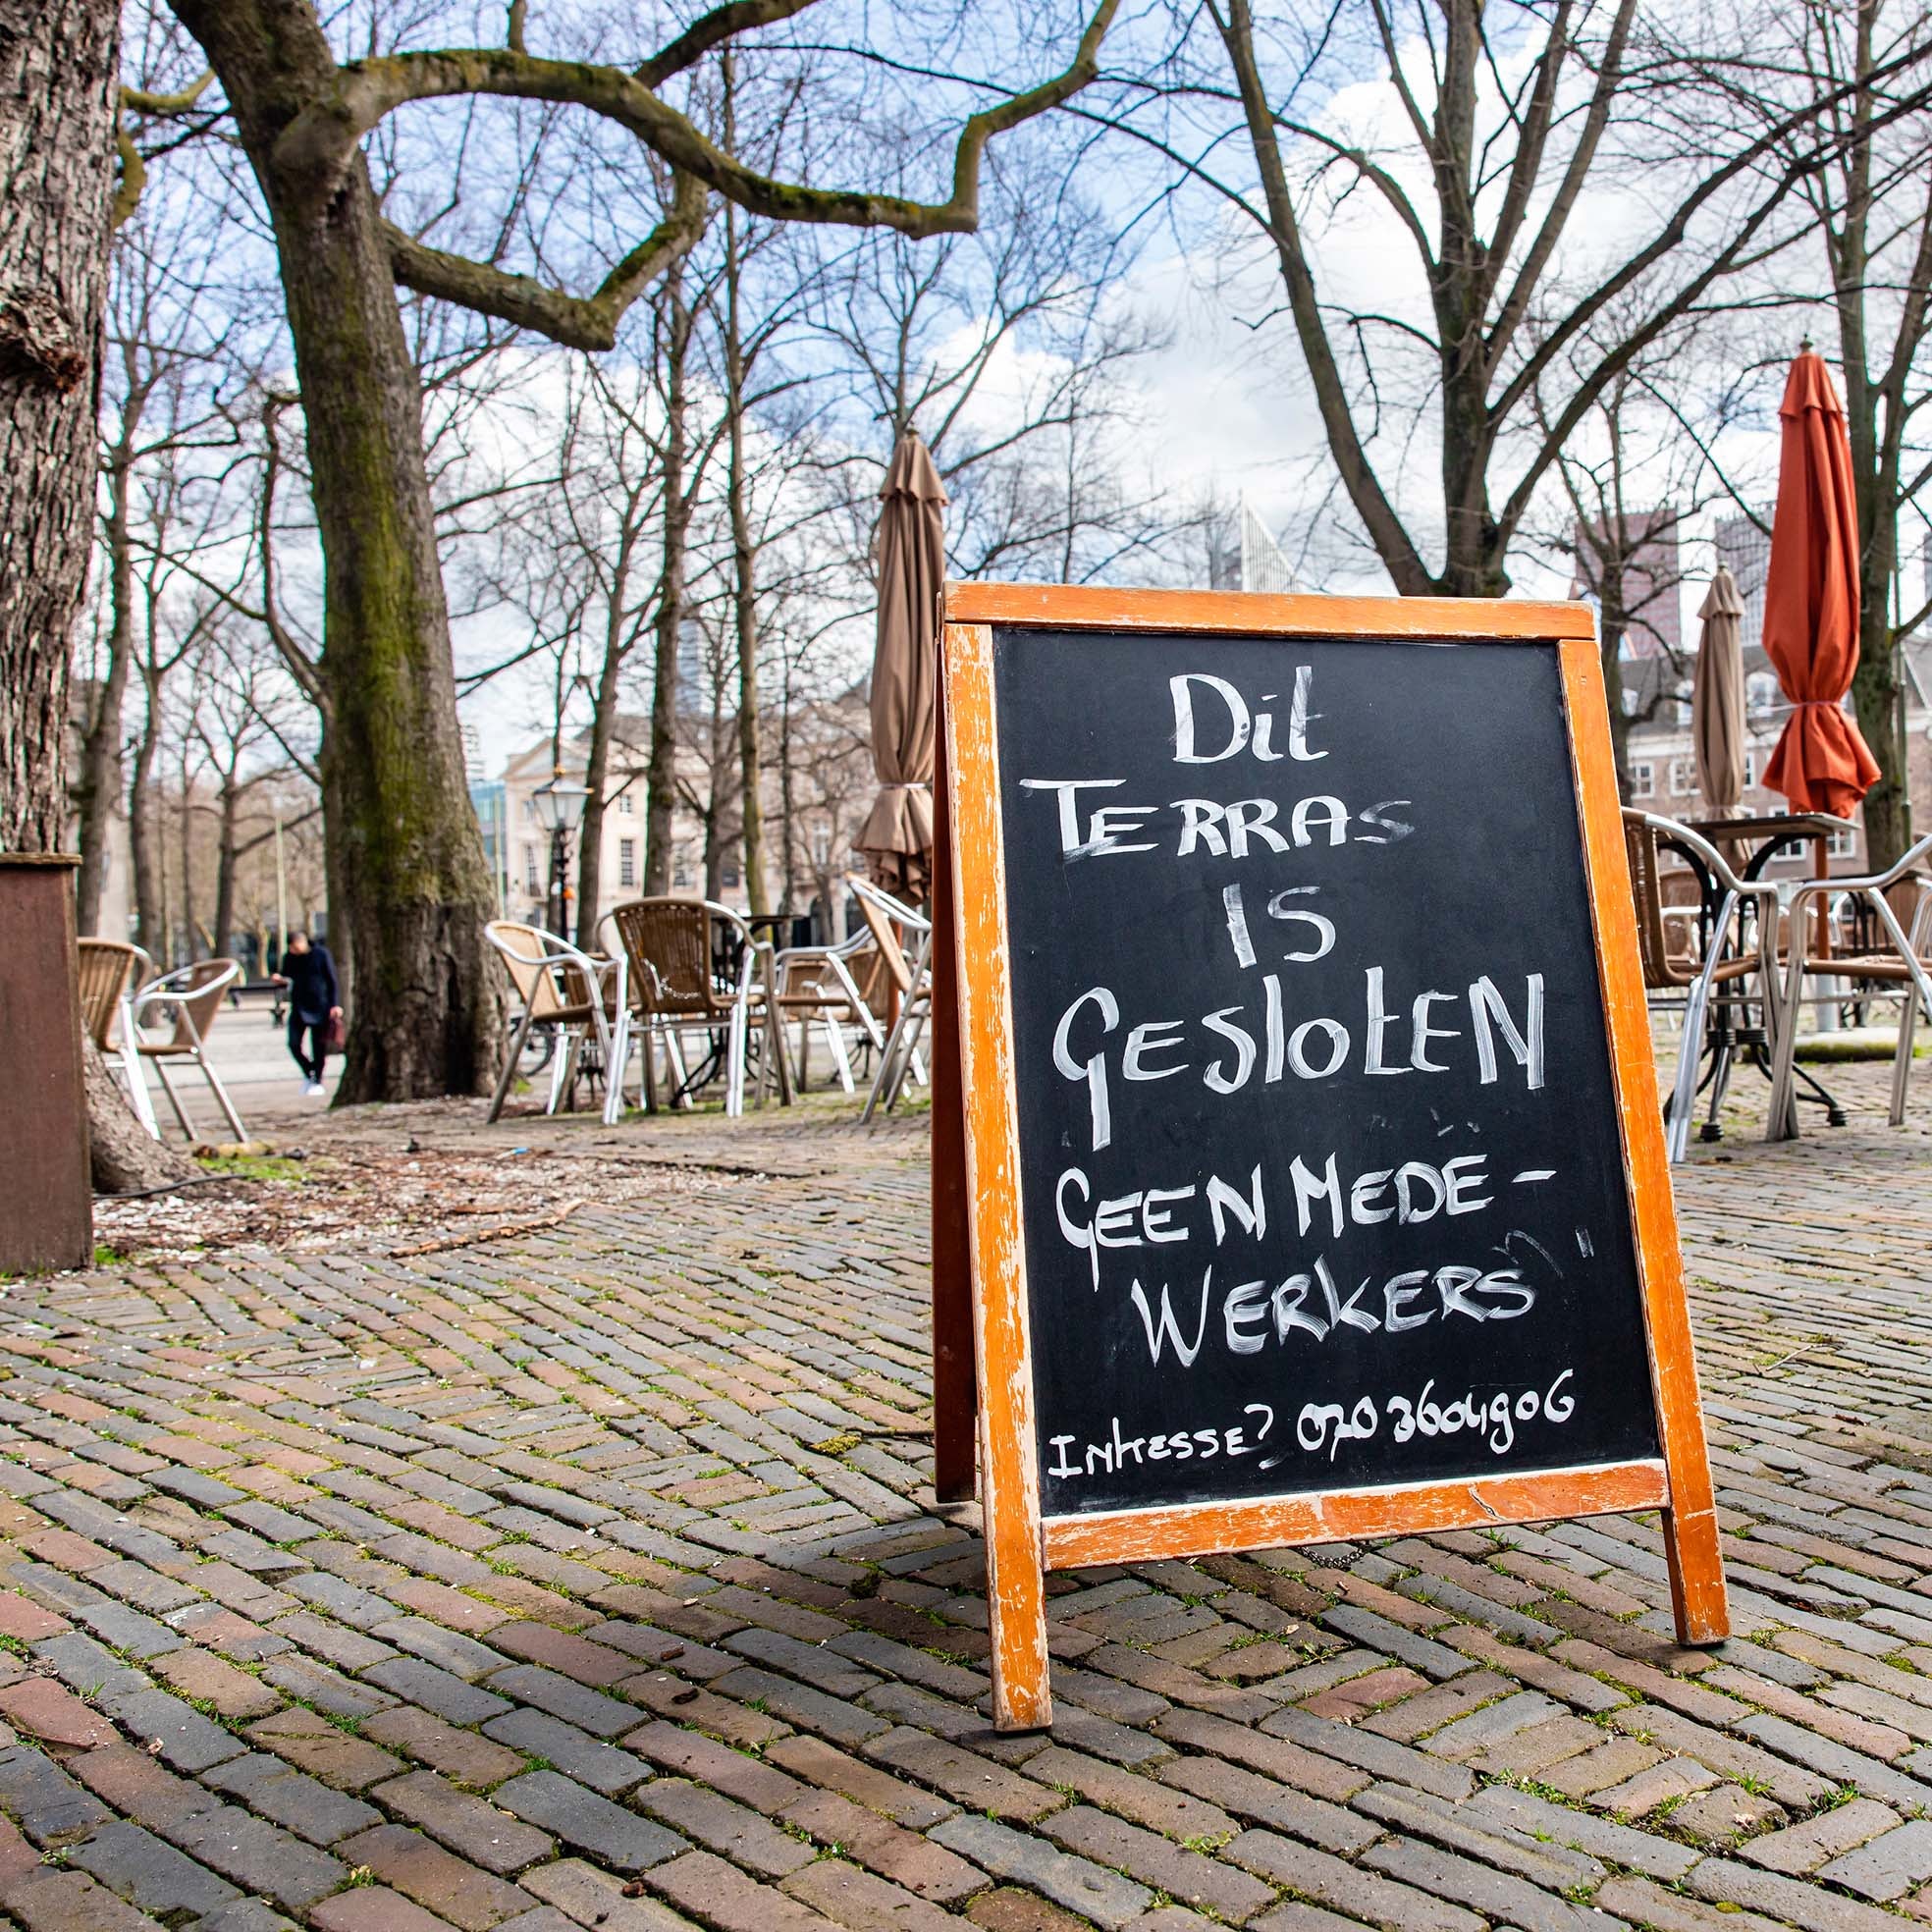 Dit
TERRAS
IS
GESLOTEN
GEEN MEDE-
WERKERS
INTRESSE? 070 3604906